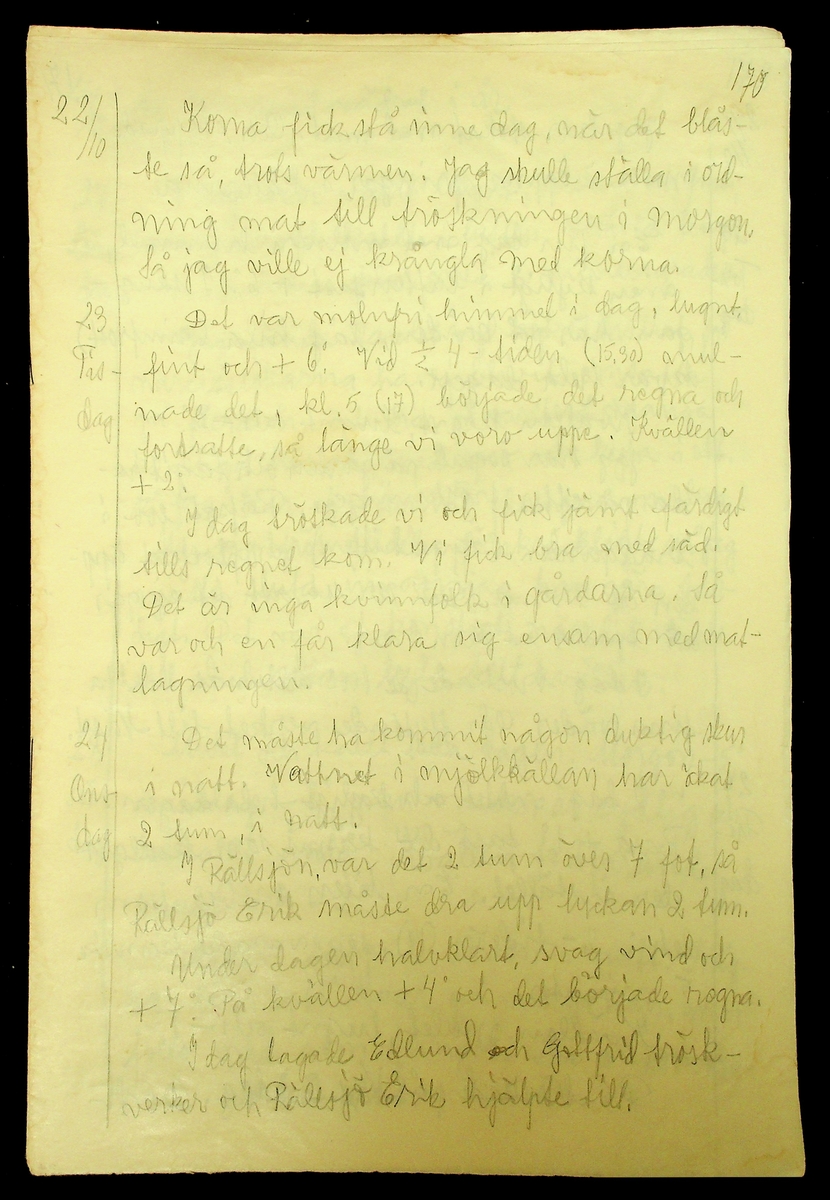 170
22/10 Korna fick stå inne dag, när det blås-
te så, trots värmen. Jag skulle ställa i ord-
ning mat till tröskningen i morgon,
så jag ville ej krångla med korna.
23 Det var molnfri himmel i dag, lugnt,
Tis- fint och + 6°. Vid ½ 4-tiden (15,30) mul-
dag nade det, kl. 5 (17) började det regna och
fortsatte, så länge vi voro uppe. Kvällen
+ 2°.
I dag tröskade vi och fick jämt färdigt
tills regnet kom. Vi fick bra med säd.
Det är inga kvinnfolk i gårdarna. Så
var och en får klara sig ensam med mat-
lagningen.
24 Det måste ha kommit någon duktig skur
Ons- i natt. Vattnet i mjölkkällan har ökat
dag 2 tum, i natt.
I Rällsjön, var det 2 tum över 7 fot, så
Rällsjö Erik måste dra upp luckan 2 tum.
Under dagen halvklart, svag vind och
+ 7°. På kvällen + 4° och det började regna.
I dag lagade Edlund och Gottfrid trösk-
verket och Rällsjö Erik hjälpte till.